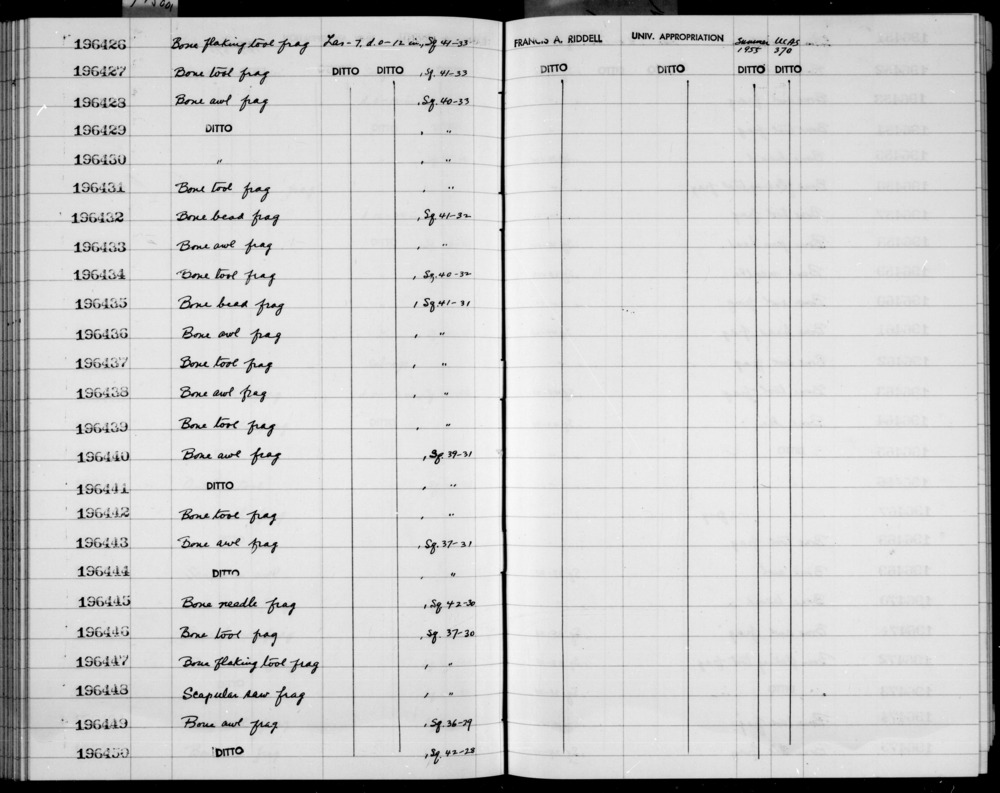 196426 Bone flaking tool frag Las-7, d. 0-12 in., Sq 41-33 FRANCIS A. RIDDELL UNIV. APPROPRIATION Summer 1955 UCAS 370
196427 Bone tool frag DITTO DITTO , Sq. 41-33 DITTO DITTO DITTO DITTO
196428 Bone awl frag , Sq. 40-33
196429 DITTO , "
196430 " , "
196431 Bone tool frag , "
196432 Bone bead frag , Sq. 41-32
196433 Bone awl frag , "
196434 Bone tool frag , Sq. 40-32
196435 Bone bead frag , Sq. 41-31
196436 Bone awl frag , "
196437 Bone tool frag , "
196438 Bone awl frag , "
196439 Bone tool frag , "
196440 Bone awl frag , Sq. 39-31
196441 DITTO , "
196442 Bone tool frag , "
196443 Bone awl frag , Sq. 37-31
196444 DITTO , "
196445 Bone needle frag , Sq. 42-30
196446 Bone tool frag , Sq. 37-30
196447 Bone flaking tool frag , "
196448 Scapular saw frag , "
196449 Bone awl frag , Sq. 36-29
196450 DITTO , Sq. 42-28